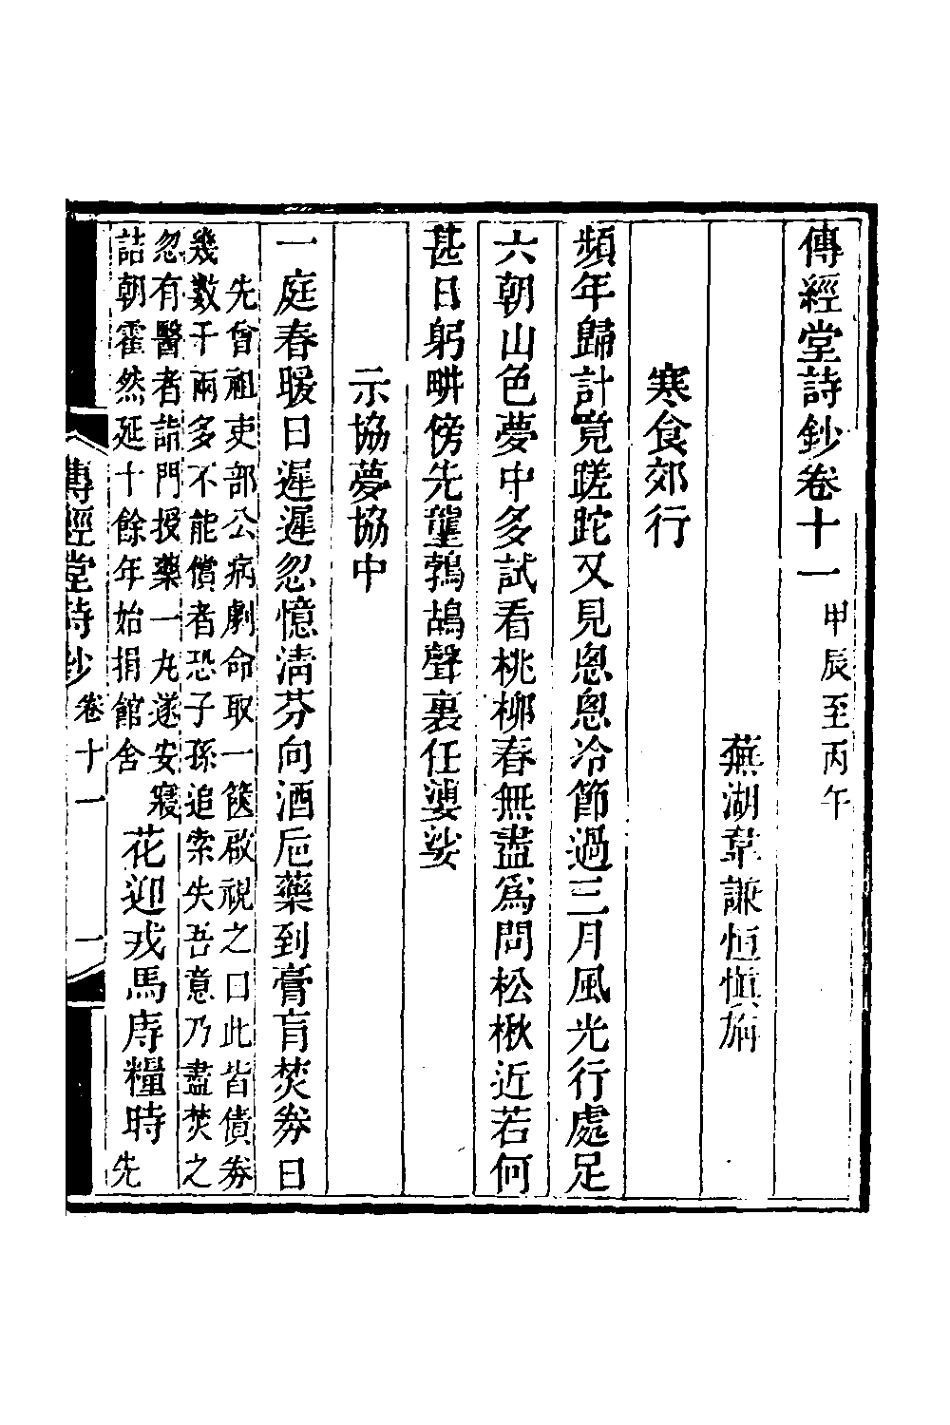 傳經堂詩鈔卷十一 甲辰至丙午
蕪湖韋謙恒慎旃
寒食郊行
頻年歸計竟蹉跎又見悤悤冷節過三月風光行處足
六朝山色夢中多試看桃柳春無盡爲問松楸近若何
甚日躬畊傍先壟鵓鴣聲裏任婆娑
示協夢協中
一庭春暖日遲遲忽憶淸芬向酒巵藥到膏肓焚券日
先曾祖吏部公病劇命取一篋啟視之曰此皆債券
幾數千兩多不能償者恐子孫追索失吾意乃盡焚之
忽有醫者詣門授藥一丸遂安寢
詰朝霍然延十餘年始捐館舍
花迎戎馬庤糧時先
傳經堂詩鈔 卷十一 一